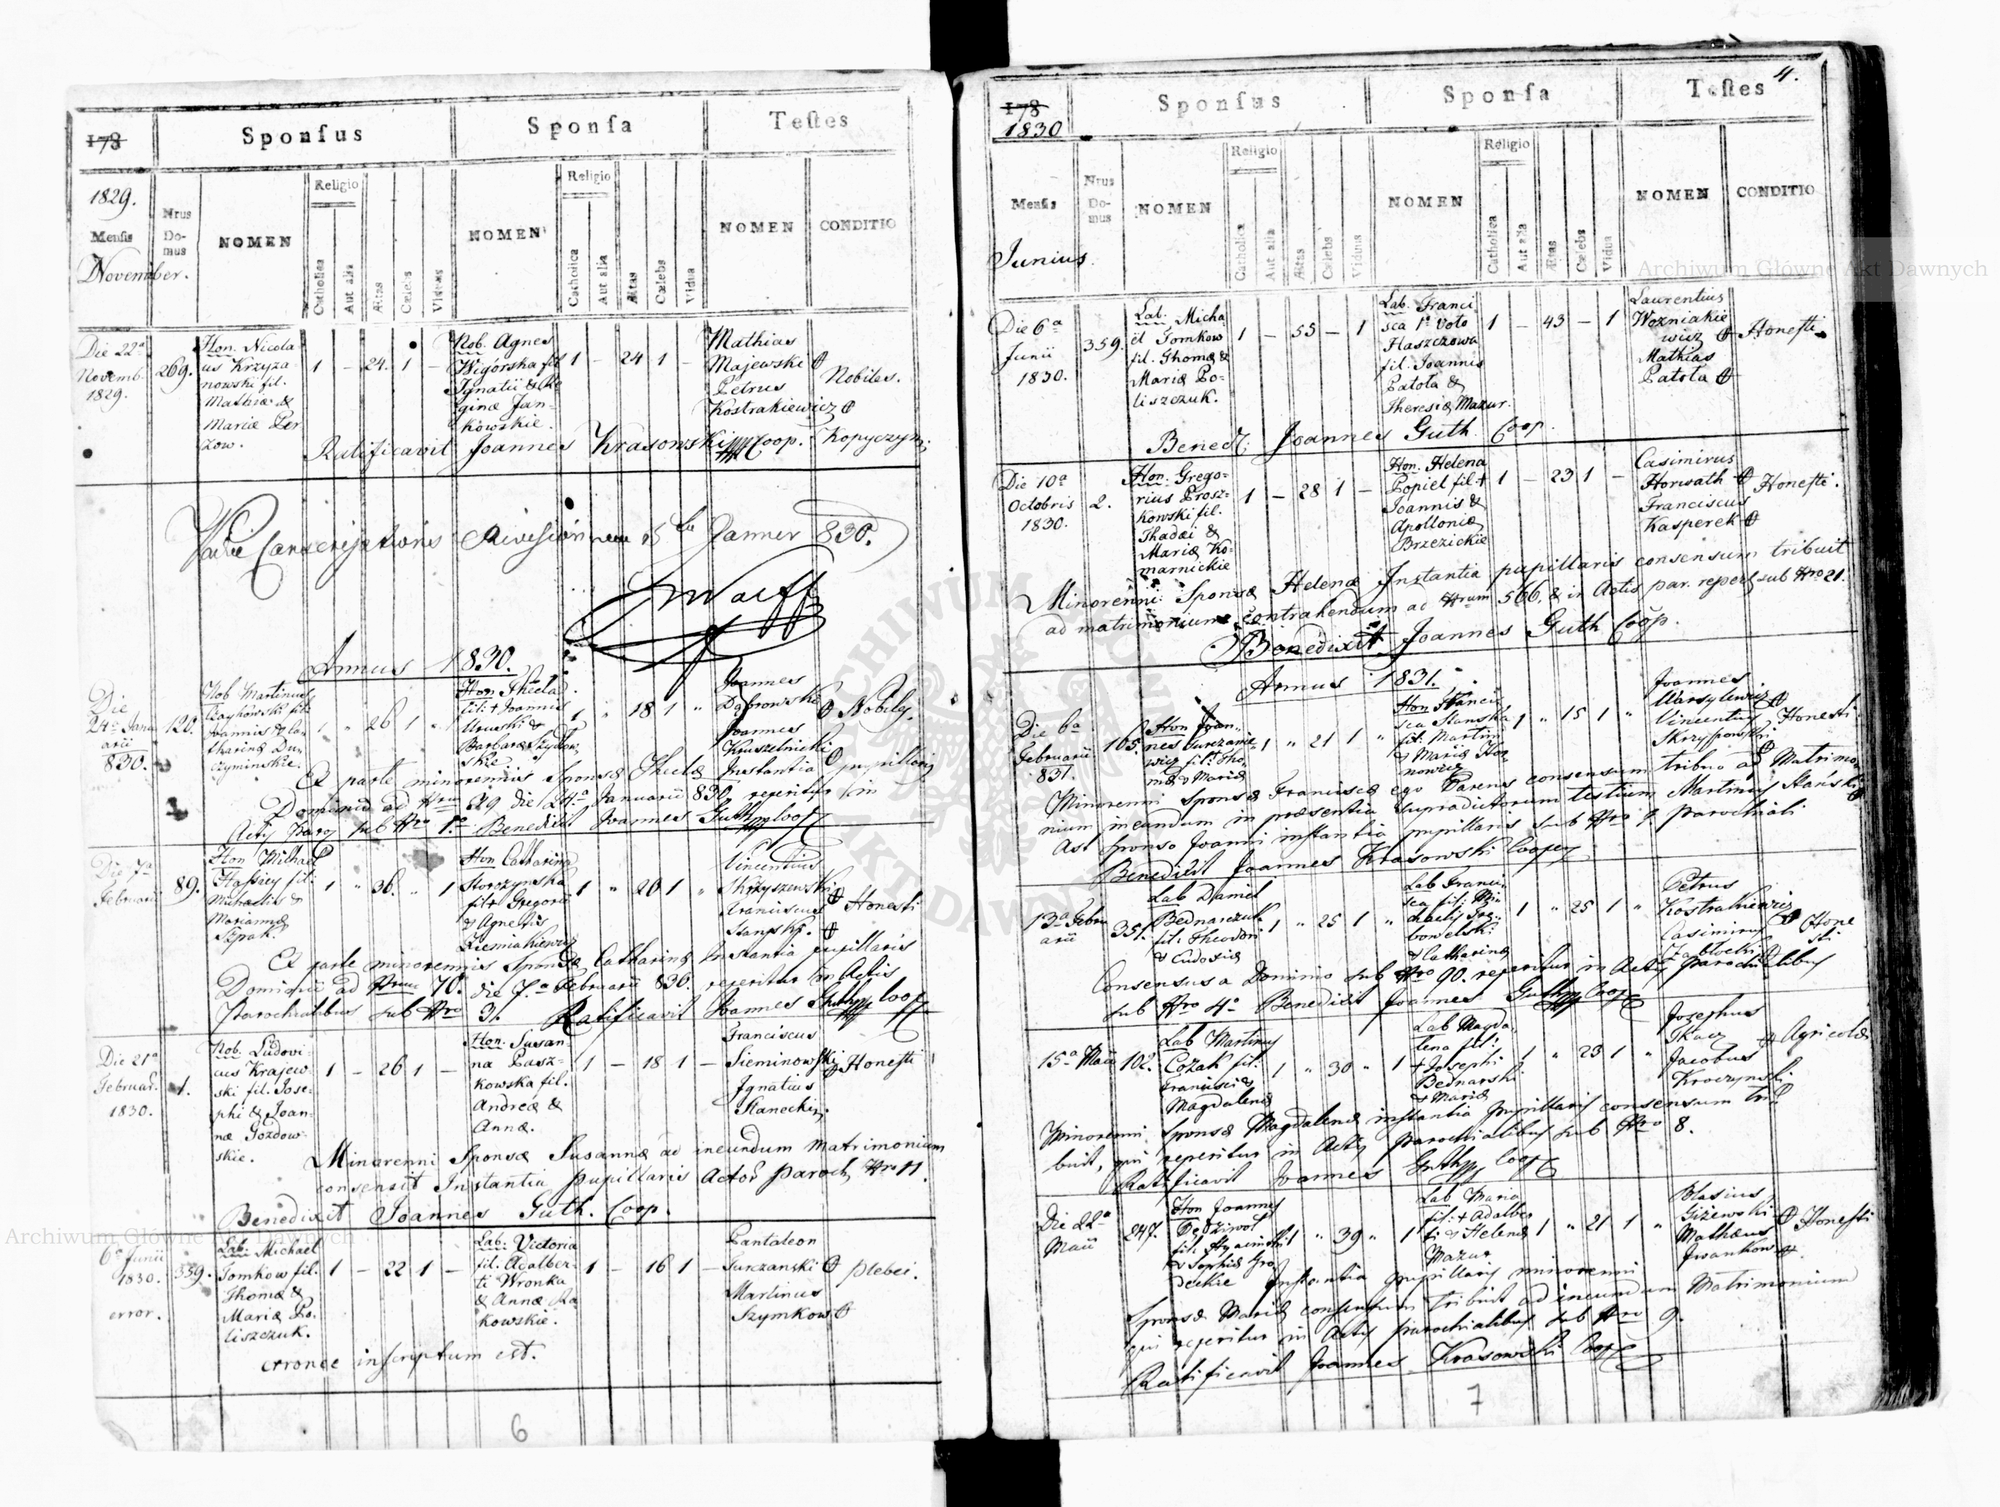 178
Sponſus
Sponſa
Teſtes
1829.
Menſis
November.
Nrus Do-mus
NOMEN
Religio
Catholica
Aut alia
Ætas
Cœlebs
Viduus
NOMEN
Religio
Catholica
Aut alia
Ætas
Cœlebs
Vidua
NOMEN
CONDITIO
Die 22a
Novemb.
1829.
269.
Hon. Nicola-
us Krzyża-
nowski fil.
Mathiæ &
Mariæ Per
zow.
1 – 24 1 –
Nob. Agnes
Wigórska fil
Ignatii & Re
ginæ Jan-
kowskie.
1 – 24 1 –
Mathias
Majewski
Petrus
Kostrakiewicz
Nobiles.
Ratificavit Joannes Krasowski Coop. Kopyczyn:
Revision 5 Janner 830.
Annus 1830.
Die
24a Janu
arii
830.
120.
Nob Martinus
Joannis &
1 " 26 1 "
Hon Thecla
fil: + Joannis
Barbaræ
skie
1 " 18 1 "
Joannes
Dąbrowski
Joannes
Kruszelnicki
Nobiles.
Ex parte minorennis Sponsæ Theclæ Instantia pupillaris
Dominii ad Nrum 29 die 24a Januarii 830 reperitur in
Actis Paroch sub Nro 1o Benedixit Joannes Guth Coop
Die 7a
Februarii
89.
Hon Michael
fil:
Michaelis &
Mariannæ
Szpak.
1 " 36 " 1
Hon Catharina
Storczynska
fil + Gregorii
& Agnetis
Ziemiakiewicz
1 " 20 1 "
Vincentius
Skrzyszewski
Franciscus
Slanski.
Honesti
Ex parte minorennis Sponsæ Catharinæ Instantia pupillaris
Dominii ad Nrum 70. die 7a Februarii 830. reperitur in Actis
Parochialibus sub Nro 3. Ratificavit Joannes Guth Coop.
Die 21a
Februar.
1830.
1.
Nob. Ludovi
cus Krajew-
ski fil. Jose-
phi & Joan-
næ Gozdow-
skie.
1 – 26 1 –
Hon. Susan-
na Pasz-
kowska fil.
Andreæ &
Annæ.
1 – 18 1 –
Franciscus
Sieminowski
Ignatius
Stanocki.
Honesti
Minorenni Sponsæ Susannæ ad ineundum matrimonium
consensit Instantia pupillaris Actor Paroch Nro 11.
Benedixit Joannes Guth. Coop.
6a Junii
1830.
error.
359.
Lab. Michael
Tomkow fil.
Thomæ &
Mariæ Po-
liszczuk.
1 – 22 1 –
Lab. Victoria
fil. Adalber-
ti Wronka
& Annæ Ra
kowskie.
1 – 16 1 –
Pantaleon
Surzanski
Martinus
Szymkow
plebei.
erronee inscriptum est.
6
4.
178
1830
Sponſus
Sponſa
Teſtes
Menſis
Junius.
Nrus Do-mus
NOMEN
Religio
Catholica
Aut alia
Ætas
Cœlebs
Viduus
NOMEN
Religio
Catholica
Aut alia
Ætas
Cœlebs
Vidua
NOMEN
CONDITIO
Die 6a
Junii
1830.
359.
Lab. Micha
el Tomkow
fil. Thomæ &
Mariæ Po-
liszczuk.
1 – 55 – 1
Lab. Franci
sca 1o voto
Haszczowa
fil. Joannis
Patoła &
Theresiæ Mazur.
1 – 43 – 1
Laurentius
Wozniakie
wicz
Mathias
Patoła
Honeſti.
Bened: Joannes Guth Coop.
Die 10a
Octobris
1830.
2.
Hon. Grego-
rius Prosz-
kowski fil.
Thadæi &
Mariæ Ko-
marnickie
1 – 28 1 –
Hon. Helena
Popiel fil. +
Joannis &
Apolloniæ
Brzezickie
1 – 23 1 –
Casimirus
Horwath
Franciscus
Kasperek
Honeſti.
Minorenni Sponsæ Helenæ Instantia pupillaris consensum tribuit
ad matrimonium contrahendum ad Nrum 566, & in Actis par. repert. sub Nro 21.
Benedixit Joannes Guth Coop.
Annus 1831.
Die 6a
Februarii
831.
165.
Hon Joan-
nes Surzanie-
wicz fil: Tho-
mæ & Mariæ
1 " 21 1 "
Hon Francis
sca Stanska
fil: Martini
& Mariæ
nowicz
1 " 15 1 "
Joannes
Warsylewicz
Vincentius
Skrzypowski
Honesti
Minorenni Sponsæ Franciscæ ego Parens consensum tribuo ad Matrimo-
nium ineundum in præsentia supradictorum testium Martinus Stański
Ast sponso Joanni instantia pupillaris sub Nro 9 parochiali
Benedixit Joannes Krasowski Cooper
13a Febru
arii
351.
Lab Daniel
Bednarczuk
fil: Theodori
& Eudosiæ
1 " 25 1 "
Lab Franci-
sca fil: Mi-
chaelis
& Catharinæ
1 " 25 1 "
Petrus
Kostrakiewicz
Casimirus
Zabłocki
Hone
sti
Consensus a Dominio sub Nro 90. reperitur in Actis parochialibus
sub Nro 4o Benedixit Joannes Guth Coop
15a Maii
102.
Lab Martinus
Cozak fil.
Francisci &
Magdalenæ
1 " 30 " 1
Lab Magda
lena fil:
+ Josephi
Bednarski
& Mariæ
1 " 23 1 "
Josephus
Tkacz
Jacobus
Kroczynski
Agricolæ
Minorenni Sponsæ Magdalenæ instantia pupillaris consensum tri
buit, qui reperitur in Actis parochialibus sub Nro 8.
Ratificavit Joannes Guth Coop
Die 22a
Maii
247.
Hon Joannes
Dędziwoł
fil: Hyacinthi
& Sophiæ Gro
deckie
1 " 39 " 1
Lab Maria
fil: + Adalber
ti & Helenæ
Mazur
1 " 21 1 "
Blasius
Giżewski
Mathæus
Iwankow
Honesti
Instantia pupillaris minorenni
Sponsæ Mariæ consensum tribuit ad ineundum Matrimonium
qui reperitur in Actis parochialibus sub Nro 9.
Ratificavit Joannes Krasowski Coop
7
Archiwum Główne Akt Dawnych
Archiwum Główne Akt Dawnych